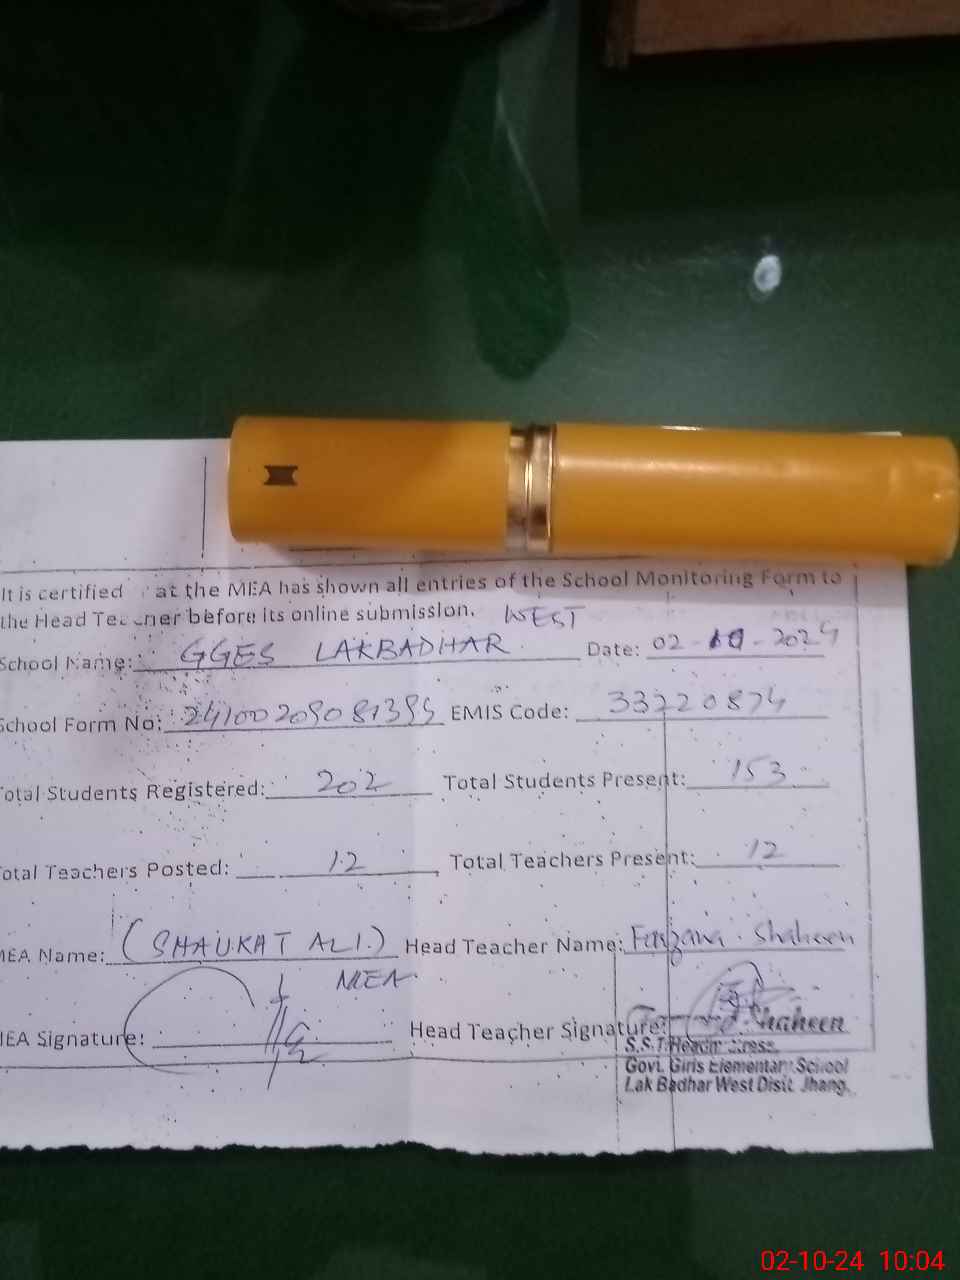 It is certified at the MEA has shown all entries of the School Monitoring Form to
the Head Teacher before its online submission.
WEST
School Name: GGES LAKBADHAR Date: 02-10-2024
School Form No: EMIS Code: 33220874
Total Students Registered: 202 Total Students Present: 153
Total Teachers Posted: 12 Total Teachers Present: 12
MEA Name: (SHAUKAT ALI) Head Teacher Name: Farzana Shaheen
MEA
MEA Signature: Head Teacher Signature:
Shaheen
S.S.T Headmistress
Govt. Girls Elementary School
Lak Badhar West Distt. Jhang.
02-10-24 10:04